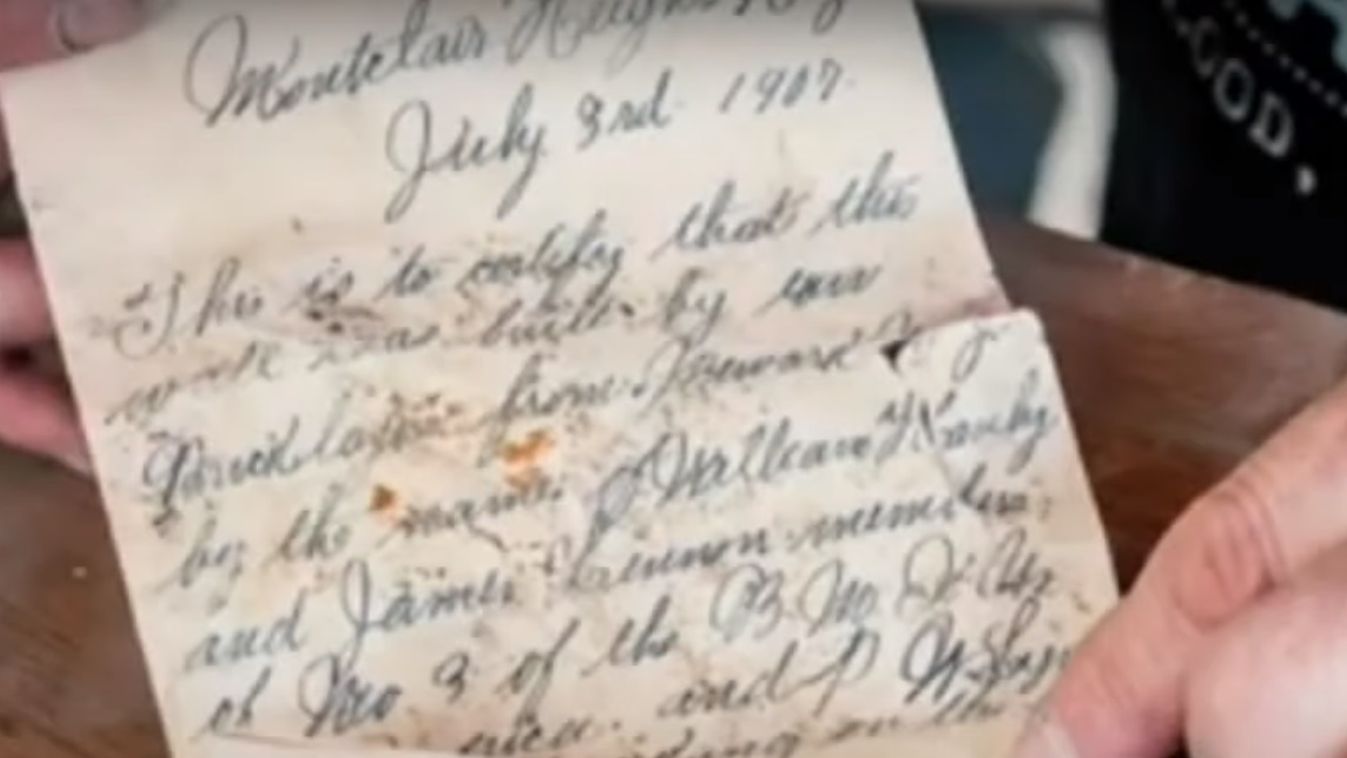 Montclair Heights N.J
July 3rd 1907.
This is to certify that this
wall was built by two
Bricklayers from Newark N.J
by the name of William Hanly
and James Lennon members
of No. 3 of the B. M. P. I. U.
and
on the
COD.